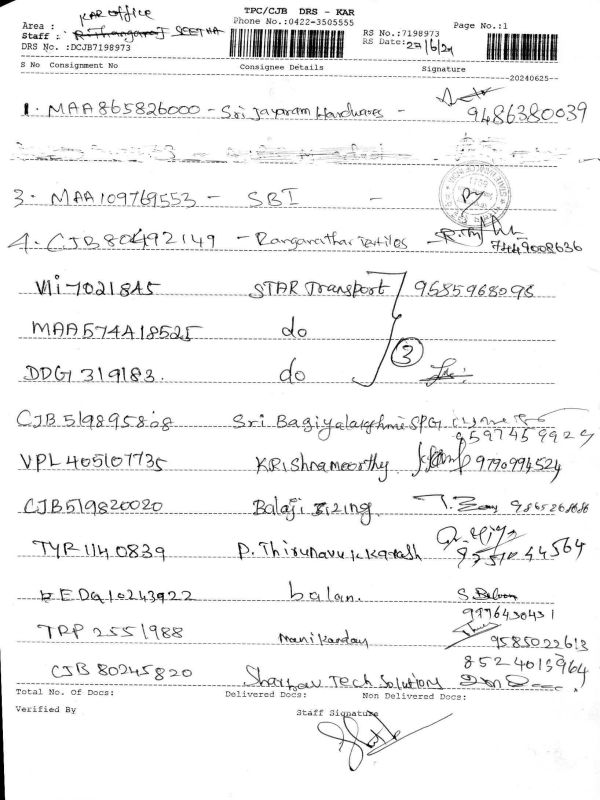 TPC/CJB DRS - KAR
KAR office
Area :
Phone No.:0422-3505555
Page No.:1
Staff : R. Thangaraj SEETHA
RS No.:7198973
DRS No. :DCJB7198973
RS Date:
S No Consignment No Consignee Details Signature
20240625
1. MAA865826000 - Sri Jayaram Hardwares - 9486380039
3. MAA109769553 - SBI -
4. CJB80492149 - Ranganathar Textiles - 7449008636
7021845 STAR Transport 9585968098
MAA574418525 do
3
DDG 319183. do
CJB 519895808 Sri Bagiyalakshmi SPG
9597459924
VPL 405107735 KRishnamoorthy 9790994524
CJB519820020 Balaji Sizing
TYR1140839 P. Thirunavukkarash
EDG10243922 balan. S. Balan
9976430431
TRP 2551988 Manikandan 9585022613
8524015964
CJB 80245820 Tech Solutions
Total No. Of Docs: Delivered Docs: Non Delivered Docs:
Verified By Staff Signature